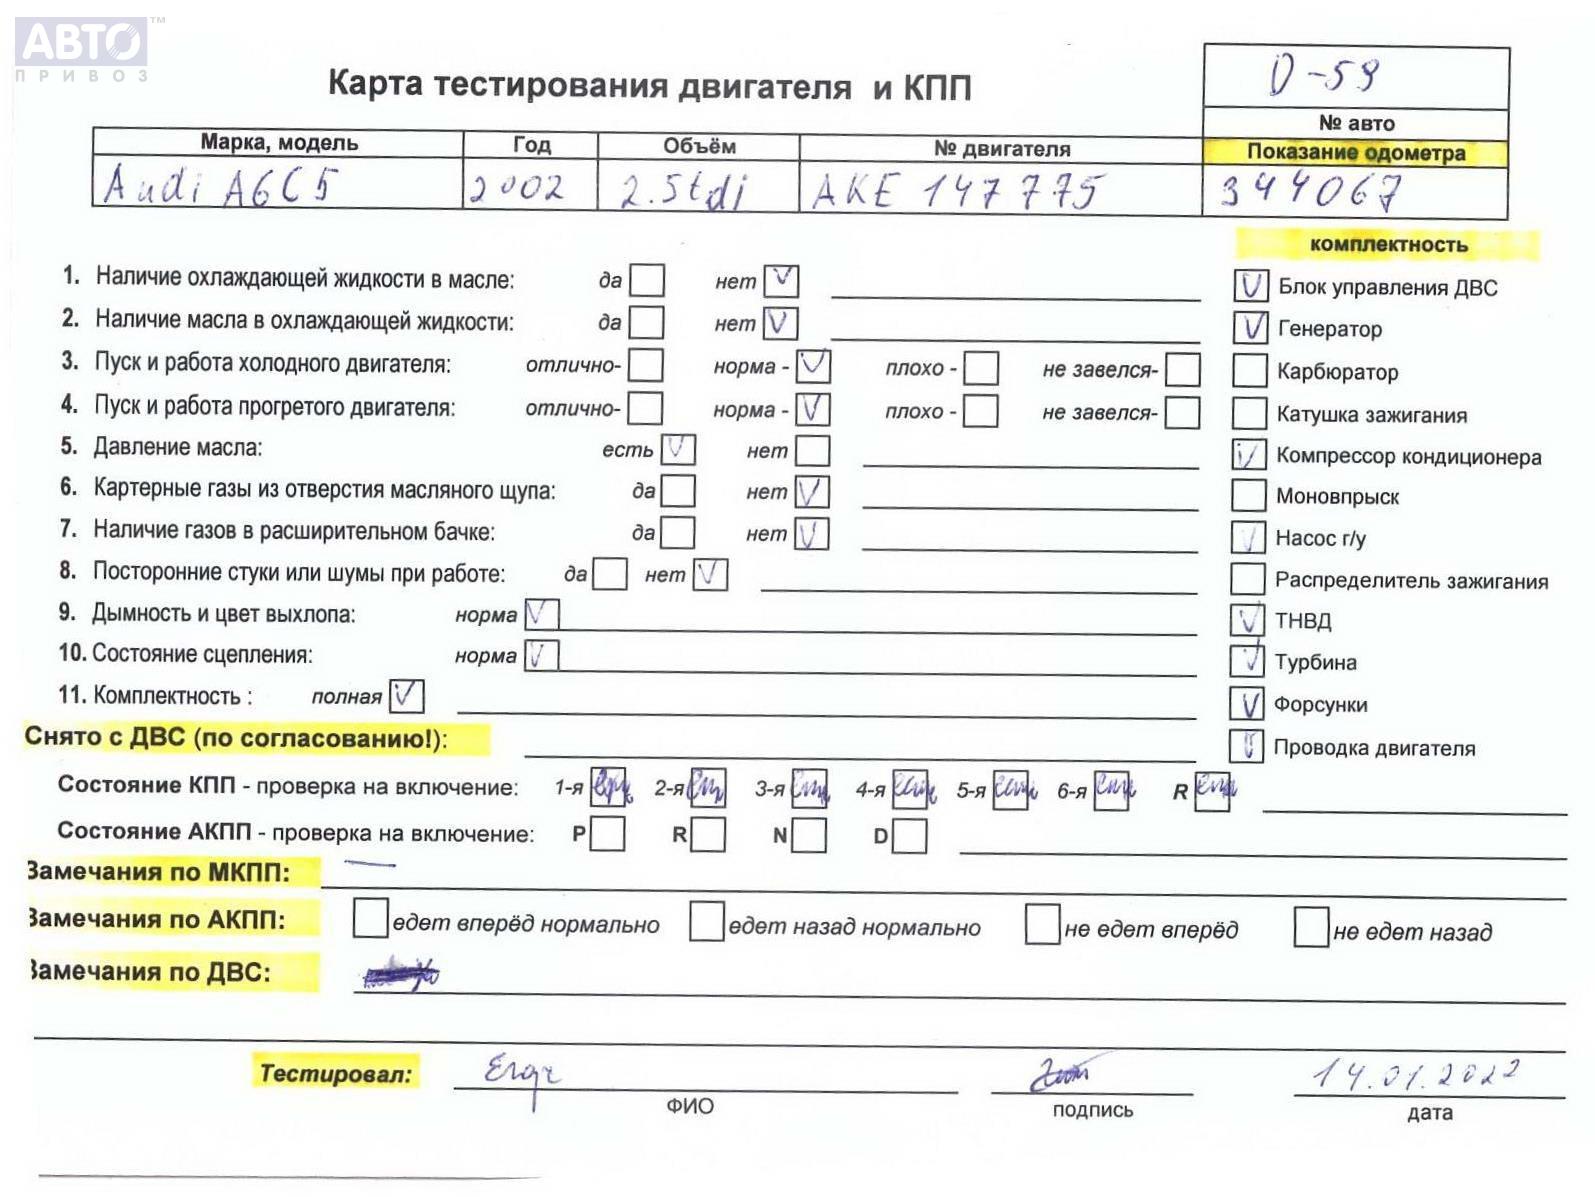 АВТО™
ПРИВОЗ
Карта тестирования двигателя и КПП
D-59
№ авто
Марка, модель Год Объём № двигателя Показание одометра
Audi A6C5 2002 2.5tdi AKE 147775 344067
комплектность
1. Наличие охлаждающей жидкости в масле: да нет V
V Блок управления ДВС
2. Наличие масла в охлаждающей жидкости: да нет V
V Генератор
3. Пуск и работа холодного двигателя: отлично- норма - V плохо - не завелся-
Карбюратор
4. Пуск и работа прогретого двигателя: отлично- норма - V плохо - не завелся-
Катушка зажигания
5. Давление масла: есть V нет
V Компрессор кондиционера
6. Картерные газы из отверстия масляного щупа: да нет V
Моновпрыск
7. Наличие газов в расширительном бачке: да нет V
V Насос г/у
8. Посторонние стуки или шумы при работе: да нет V
Распределитель зажигания
9. Дымность и цвет выхлопа: норма V
V ТНВД
10. Состояние сцепления: норма V
V Турбина
11. Комплектность : полная V
V Форсунки
Снято с ДВС (по согласованию!):
V Проводка двигателя
Состояние КПП - проверка на включение: 1-я 2-я 3-я 4-я 5-я 6-я R
Состояние АКПП - проверка на включение: P R N D
Замечания по МКПП: —
Замечания по АКПП: едет вперёд нормально едет назад нормально не едет вперёд не едет назад
Замечания по ДВС:
Тестировал: 14.01.2022
ФИО подпись дата